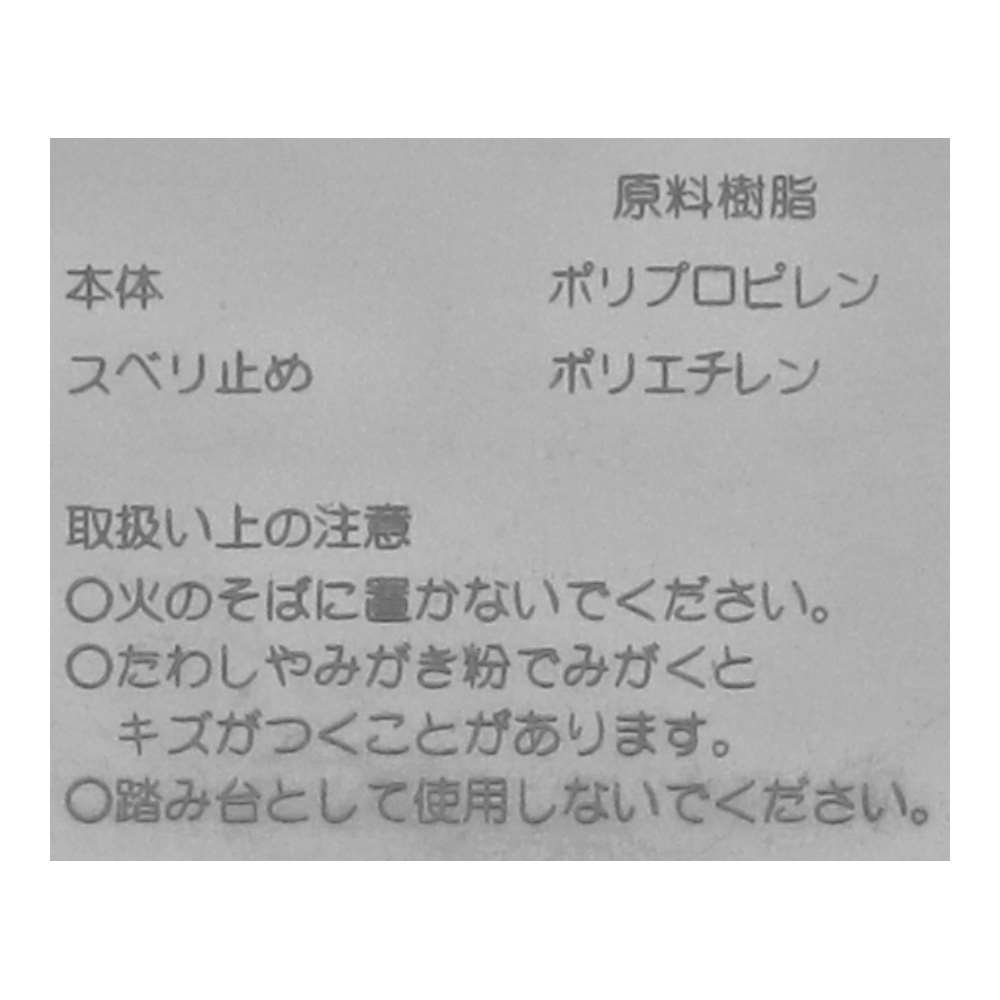 原料樹脂
本体 ポリプロピレン
スベリ止め ポリエチレン
取扱い上の注意
○火のそばに置かないでください。
○たわしやみがき粉でみがくと
キズがつくことがあります。
○踏み台として使用しないでください。